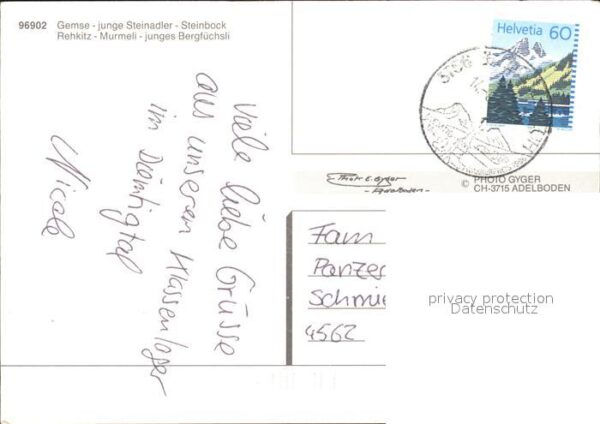 96902 Gemse - junge Steinadler - Steinbock
Rehkitz - Murmeli - junges Bergfüchsli
Viele liebe Grüsse
aus unserem Klassenlager
im Diemtigtal
Nicole
Helvetia 60
Photo E. Gyger
- Adelboden -
© PHOTO GYGER
CH-3715 ADELBODEN
Fam
Panzer
Schmie
4562
privacy protection
Datenschutz